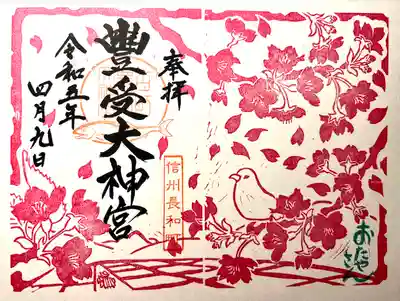 奉拝
豊受大神宮
令和五年
四月九日
信州長和
おたやさん